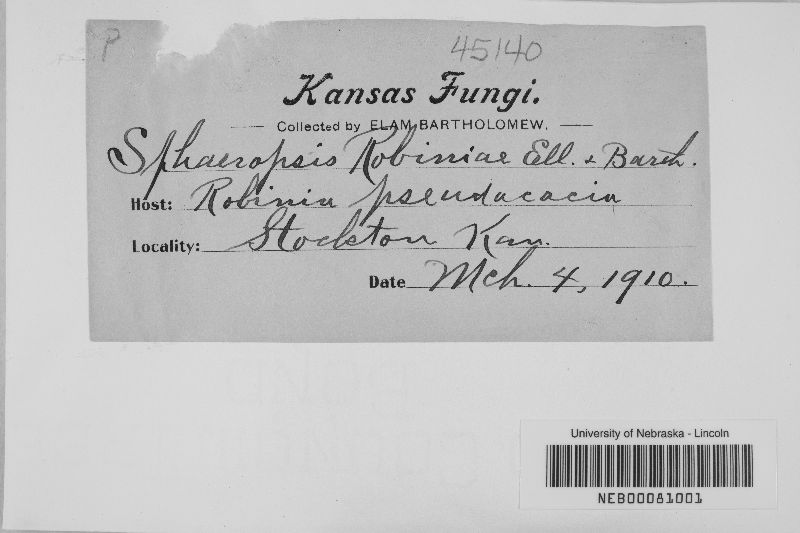 P
45140
Kansas Fungi.
Collected by ELAM BARTHOLOMEW.
Sphaeropsis Robiniae Ell. & Barth.
Host: Robinia pseudacacia
Locality: Stockton Kan.
Date Mch. 4, 1910.
University of Nebraska - Lincoln
NEB00081001